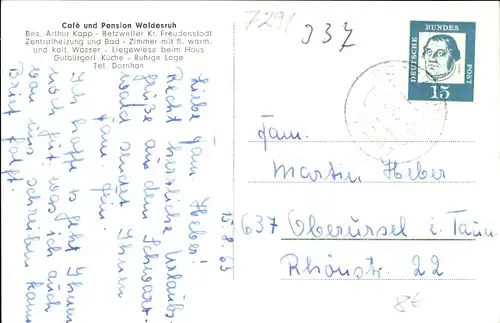 Café und Pension Waldesruh
Bes. Arthur Kapp - Betzweiler Kr. Freudenstadt
Zentralheizung und Bad - Zimmer mit fl. warm.
und kalt. Wasser - Liegewiese beim Haus
Gutbürgerl. Küche - Ruhige Lage
Tel. Dornhan
7291
337
DEUTSCHE BUNDES POST
15
13.8.63
Liebe Fam. Heber!
Recht herzliche Urlaubs-
grüße aus dem Schwarz-
wald sendet Ihnen
Fam.
Ich hoffe es geht Ihnen
noch gut was ich auch
von uns schreiben kann.
Brief folgt.
Fam.
Martin Heber
637 Oberursel i. Taun.
Rhönstr. 22
8€